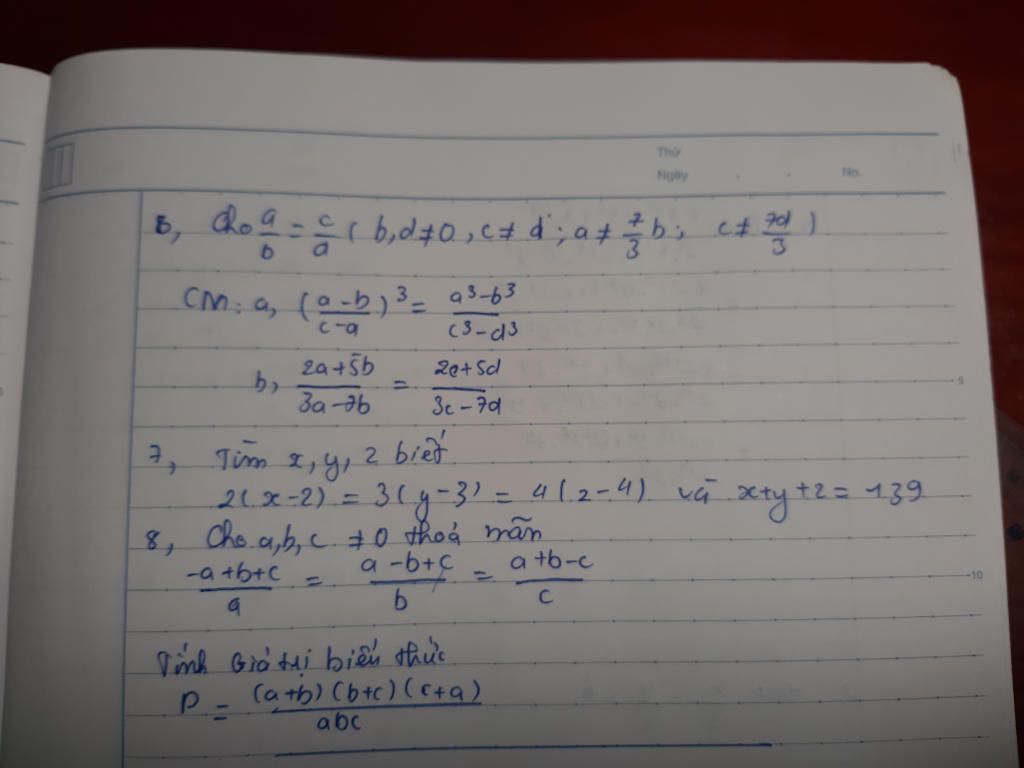 Thứ
Ngày . . No.
6, Cho a/b = c/a ( b,d ≠ 0 , c ≠ d ; a ≠ 7/3 b ; c ≠ 7d/3 )
CM : a, ( (a-b)/(c-a) )³ = (a³-b³)/(c³-d³)
b, (2a+5b)/(3a-7b) = (2c+5d)/(3c-7d)
5
7, Tìm x, y, z biết
2(x-2) = 3(y-3) = 4(z-4) và x+y+z = 139
8, Cho a,b,c ≠ 0 thoả mãn
(-a+b+c)/a = (a-b+c)/b = (a+b-c)/c
10
Tính Giá trị biểu thức
P = (a+b)(b+c)(c+a)/abc